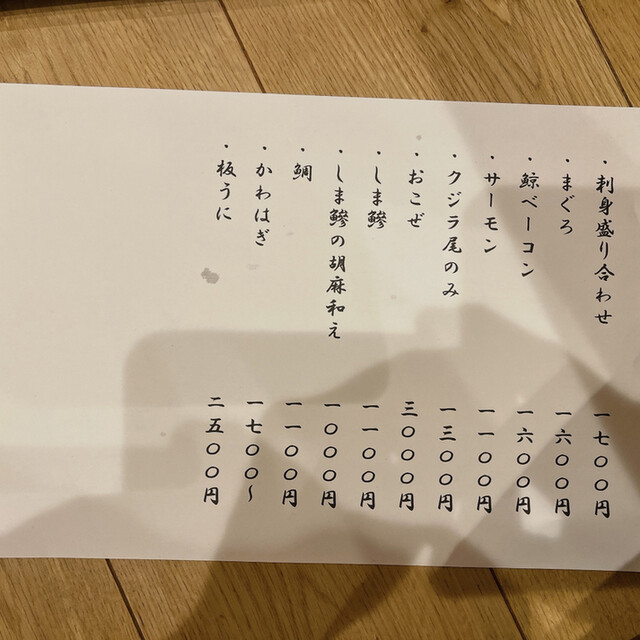 ・刺身盛り合わせ 一七〇〇円
・まぐろ 一六〇〇円
・鯨ベーコン 一六〇〇円
・サーモン 一一〇〇円
・クジラ尾のみ 一三〇〇円
・おこぜ 三〇〇〇円
・しま鯵 一一〇〇円
・しま鯵の胡麻和え 一〇〇〇円
・鯛 一一〇〇円
・かわはぎ 一七〇〇～
・板うに 二五〇〇円